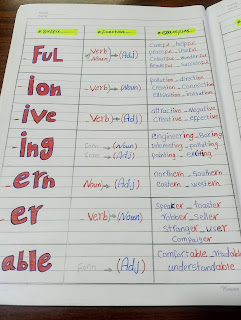 Suffix
function
examples
FUL
Verb
(Noun) → (Adj)
useful _ helpful
peaceful _ useful
Colourful _ wonderful
Beautiful _ successful
_ion
Verb → (Noun)
pollution _ direction
Creation _ Connection
_ive
Verb → (Adj)
attractive _ Negative
Creative _ effective
_ing
(Noun)
(Adj)
engineering _
interesting _ polluting
painting _ exciting
_ern
Noun → (Adj)
northern _ Southern
eastern _ western
_er
Verb → (Noun)
Speaker _ toaster
robber _ seller
stranger _ user
Computer
able
(Adj)
Comfortable _ readable
understandable